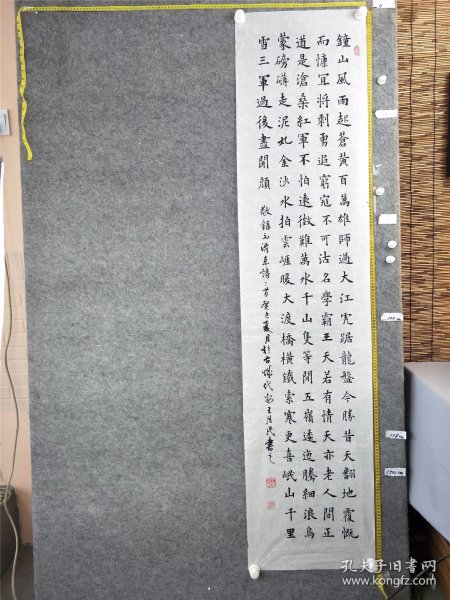 鐘山風雨起蒼黃百萬雄師過大江虎踞龍盤今勝昔天翻地覆慨
而慷宜將剩勇追窮寇不可沽名學霸王天若有情天亦老人間正
道是滄桑紅軍不怕遠徵難萬水千山隻等閒五嶺逶迤騰細浪烏
蒙磅礴走泥丸金沙水拍雲崖暖大渡橋橫鐵索寒更喜岷山千里
雪三軍過後盡開顏
敬錄毛澤東詩二首癸巳夏月於古代王月民書之
孔夫子旧书网
kongfz.com